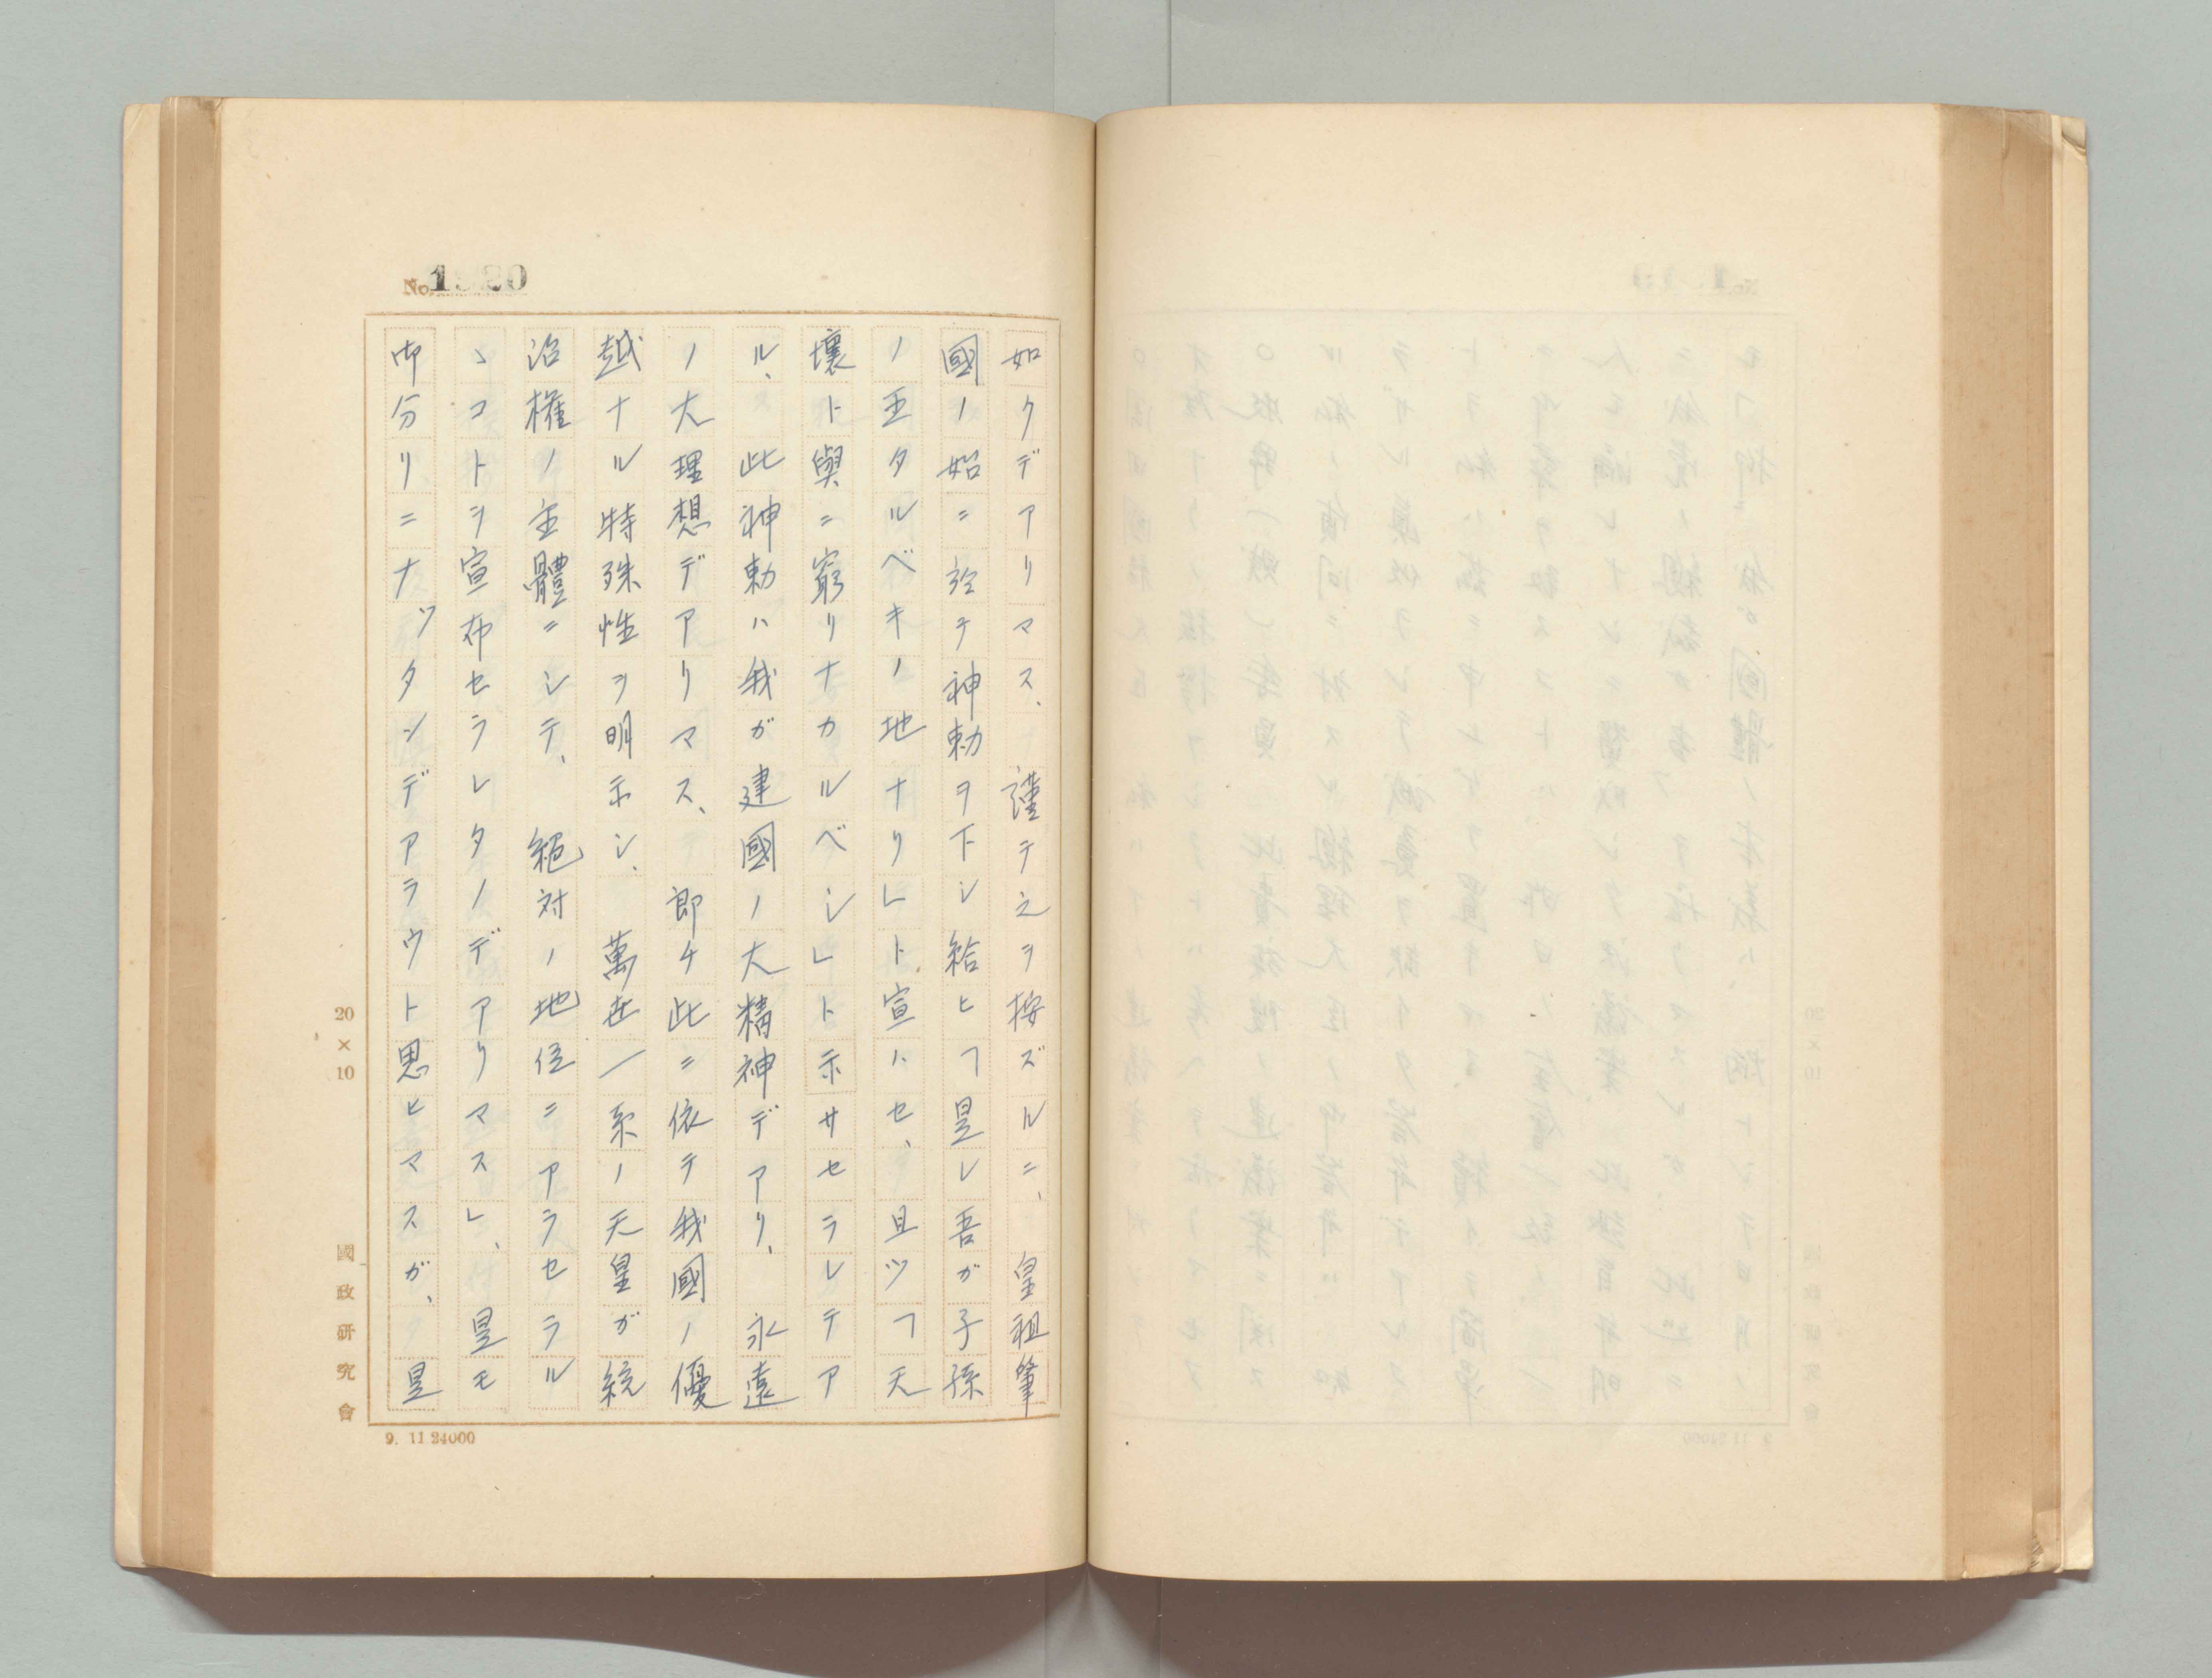 No. 1320
如クデアリマス、謹テ之ヲ按ズルニ、皇祖肇
國ノ始ニ於テ神勅ヲ下シ給ヒ「是レ吾ガ子孫
ノ王タルベキノ地ナリ」ト宣ハセ、且ツ「天
壤ト與ニ窮リナカルベシ」ト示サセラレテア
ル、此神勅ハ我ガ建國ノ大精神デアリ、永遠
ノ大理想デアリマス、即チ此ニ依テ我國ノ優
越ナル特殊性ヲ明示シ、萬世一系ノ天皇ガ統
治權ノ主體ニシテ、絕対ノ地位ニアラセラル
ヽコトヲ宣布セラレタノデアリマス」、是モ
御分リニナツタンデアラウト思ヒマスガ、是
20×10
國政研究會
9. 11 24000